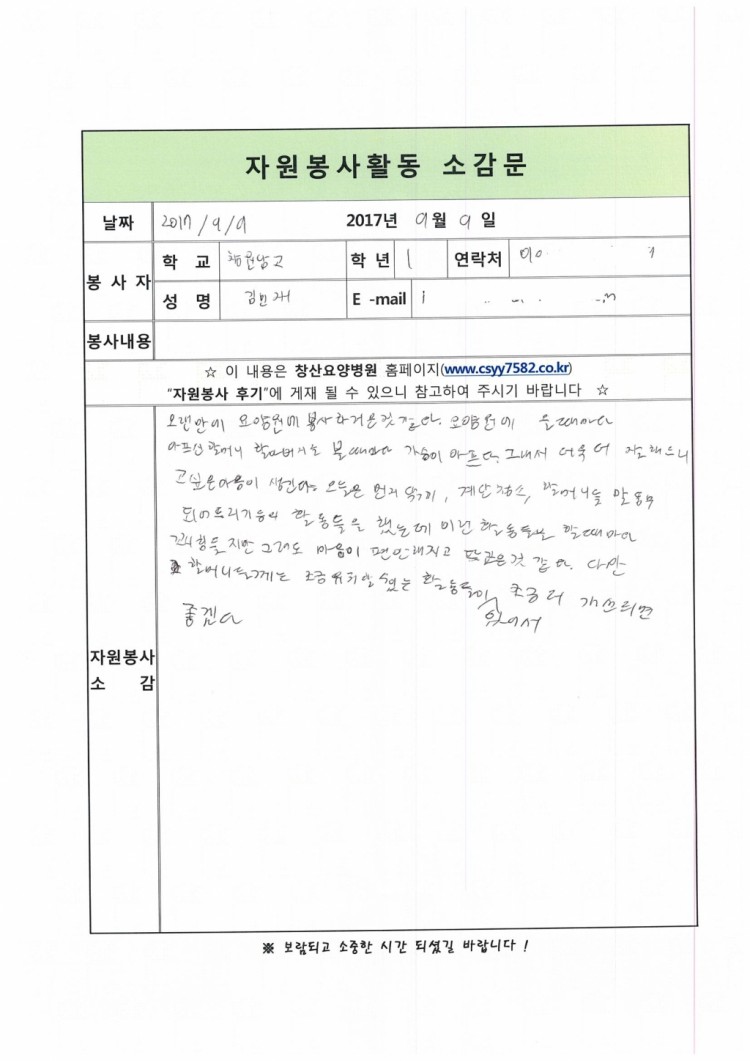 자원봉사활동 소감문
날짜 2017/9/9 2017년 9월 9일
봉사자 학교 창원남고 학년 1 연락처 010
성명 김민재 E-mail
봉사내용
☆ 이 내용은 창산요양병원 홈페이지(www.csyy7582.co.kr)
"자원봉사 후기"에 게재 될 수 있으니 참고하여 주시기 바랍니다 ☆
자원봉사
소감
오랜만에 요양원에 봉사하러온것 같다. 요양원에 올때마다
아프신 할머니 할아버지를 볼때마다 가슴이 아프다. 그래서 더욱 더 잘해드리
고싶은마음이 생긴다. 오늘은 먼지 닦기, 계단청소, 할머니들 말동무
되어드리기등의 활동들을 했는데 이런 활동들을 할때마다
힘들지만 그래도 마음이 편안해지고 뜻깊은것 같다. 다만
할머니들께는 조금 할수있는 활동들이 있어서 조금 더 개선되면
좋겠다
※ 보람되고 소중한 시간 되셨길 바랍니다!